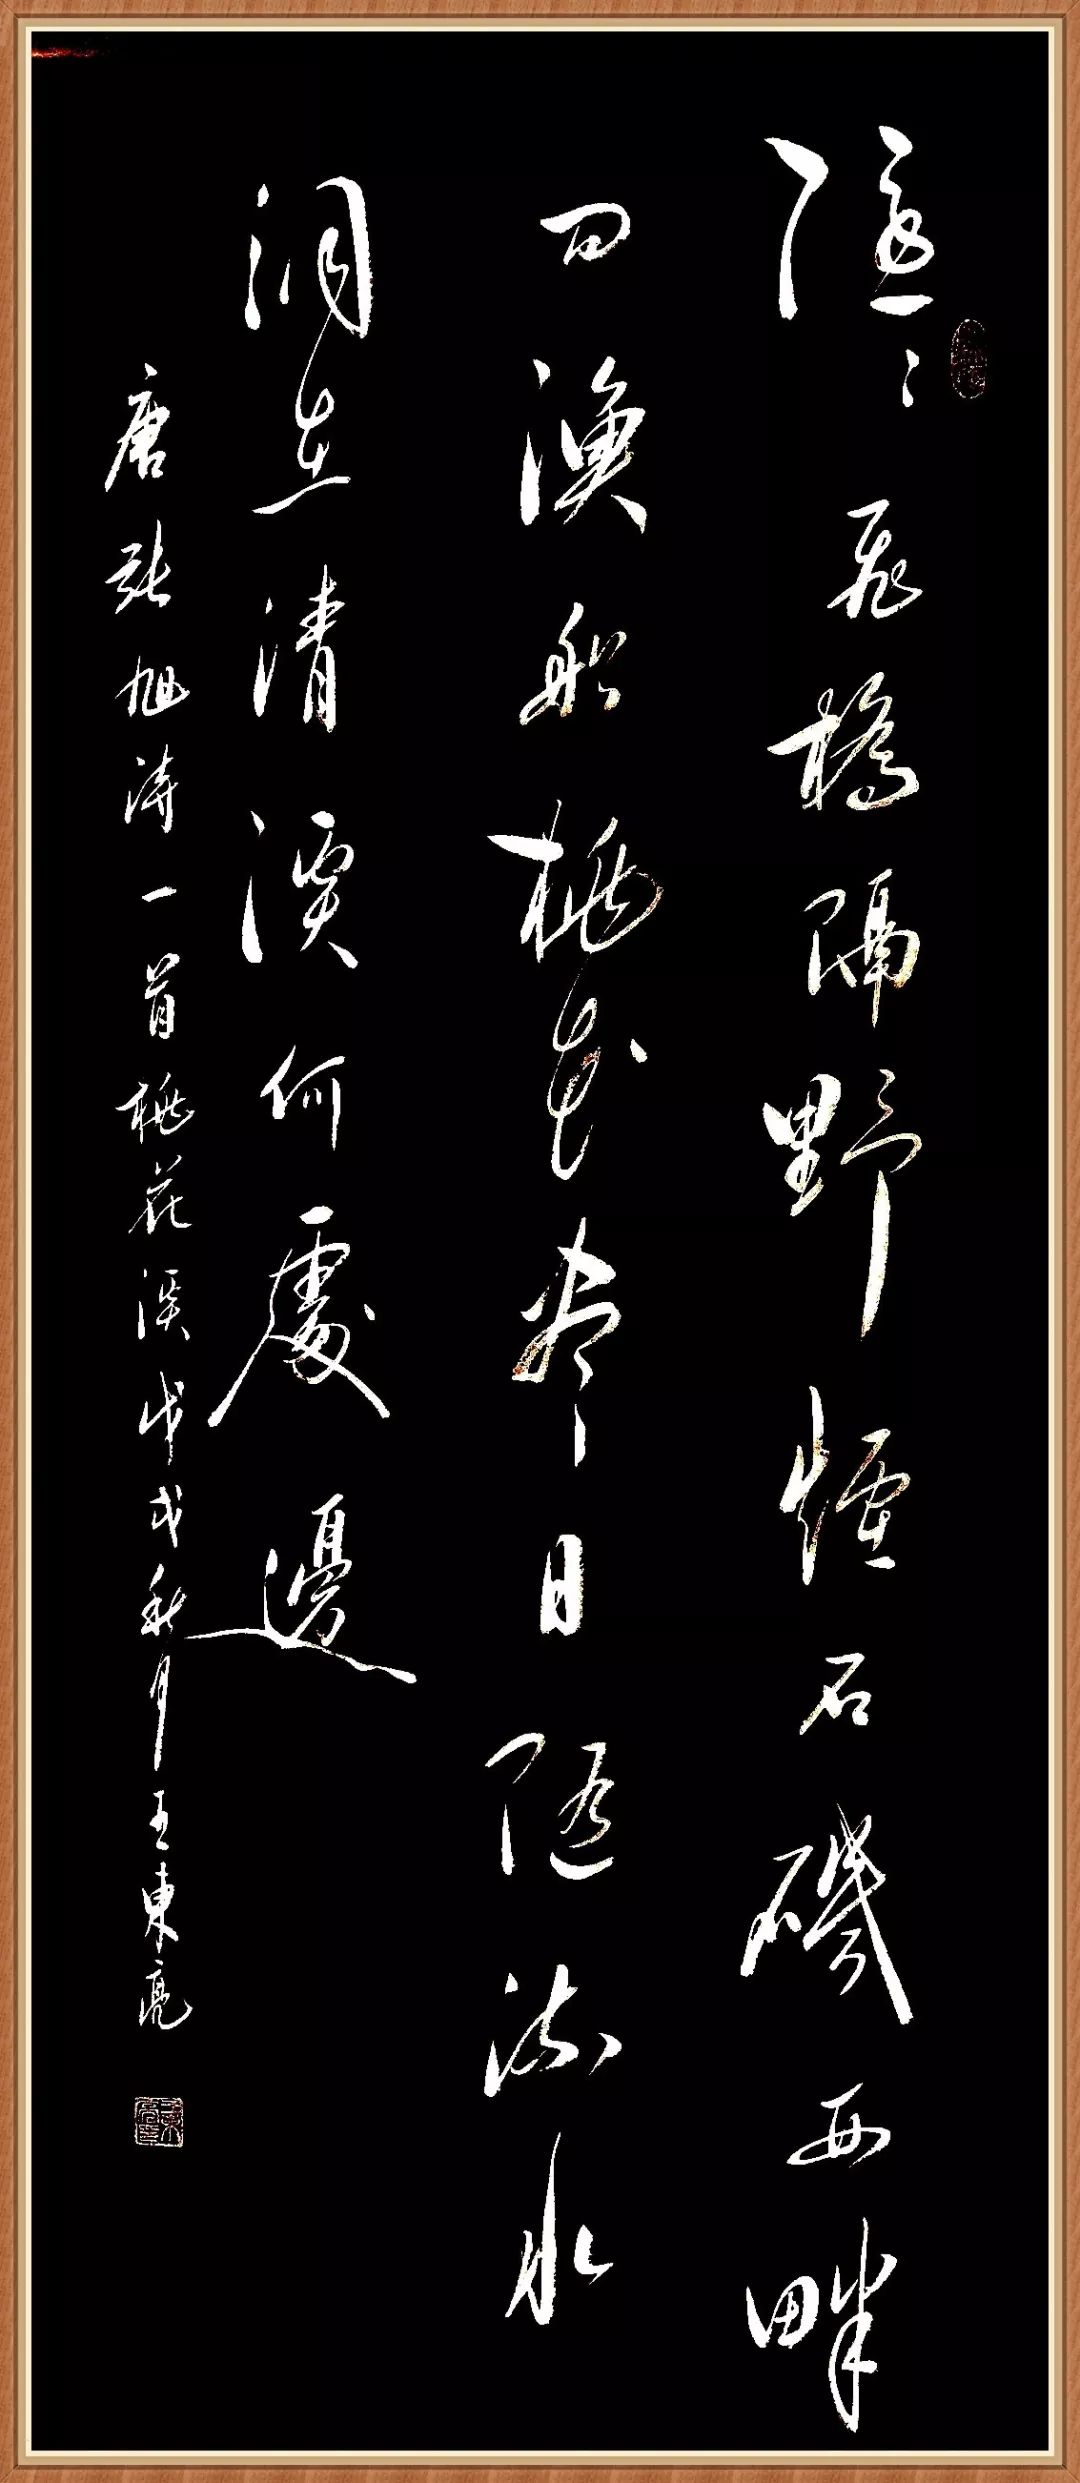 隐〻飛橋隔野煙石磯西畔
问漁船桃花盡日隨流水
洞在清溪何處邊
唐張旭詩一首桃花溪戊戌秋月王東亮